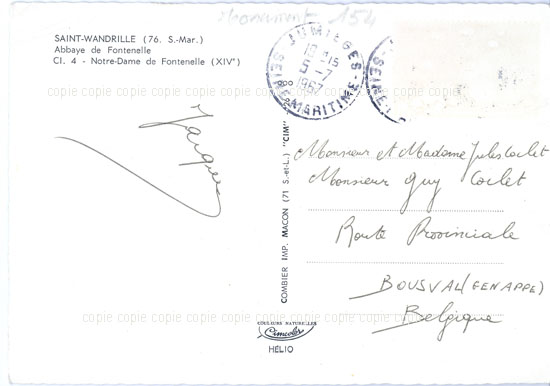 Monument 154
SAINT-WANDRILLE (76. S.-Mar.)
Abbaye de Fontenelle
Cl. 4 - Notre-Dame de Fontenelle (XIVᵉ)
JUMIEGES
5-7
1967
SEINE-MARITIME
SEINE
Jacques
COMBIER IMP. MACON (71 S.-et-L.) "CIM"
Monsieur et Madame Jules Coclet
Monsieur Guy Coclet
Route Provinciale
BOUSVAL (GENAPPE)
Belgique
copie copie copie copie copie copie copie copie copie copie copie copie
copie copie copie copie copie copie copie copie copie copie copie copie
copie copie copie copie copie copie copie copie copie copie copie copie
COULEURS NATURELLES
Cimcolor
HELIO